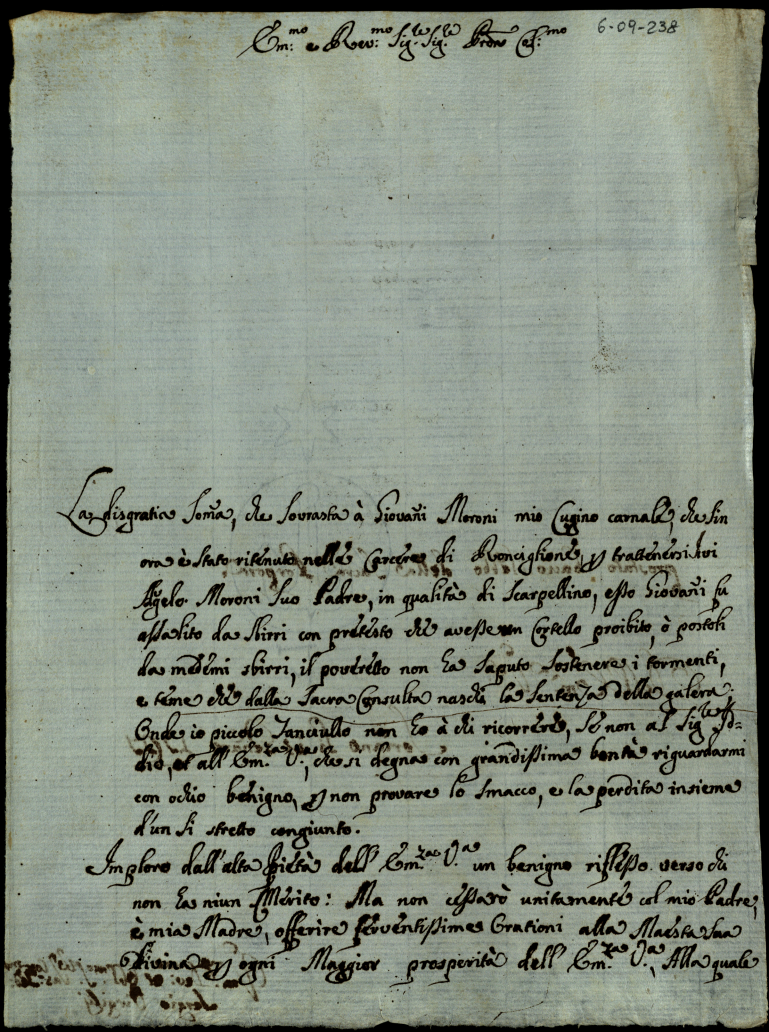 6-09-238
Em:mo e Rev:mo Sig.re Sig.re Prōn Col:mo
La disgratia soma, che sovrasta à Giovañi Moroni mio Cugino carnale, che sin
ora è stato ritenuto nelle Carcere di Ronciglione, p trattenersi ivi
Angelo Moroni suo Padre, in qualità di Scarpellino, esso Giovañi fu
assalito da sbirri con pretesto che avesse un Cortello proibito, ò postoli
da medemi sbirri, il poveretto non ha saputo sostenere i tormenti,
e teme che dalla Sacra Consulta naschi la sentenza della galera;
Onde io piccolo fanciullo non ho à chi ricorrere, se non al Sig.re Id=
dio, et all'Em.za V.a, che si degna con grandissima bontà riguardarmi
con ochio benigno, p non provare lo smacco, e la perdita insieme
d'un si stretto congiunto.
Imploro dall'alta pietà dell'Em.za V.a un benigno riflesso verso chi
non ha niun Merito: Ma non cessarò unitamente col mio Padre,
e mia Madre, offerire ferventissime Orationi alla Maestà Sua
Divina p ogni Maggior prosperità dell'Em.za V.a, Alla quale